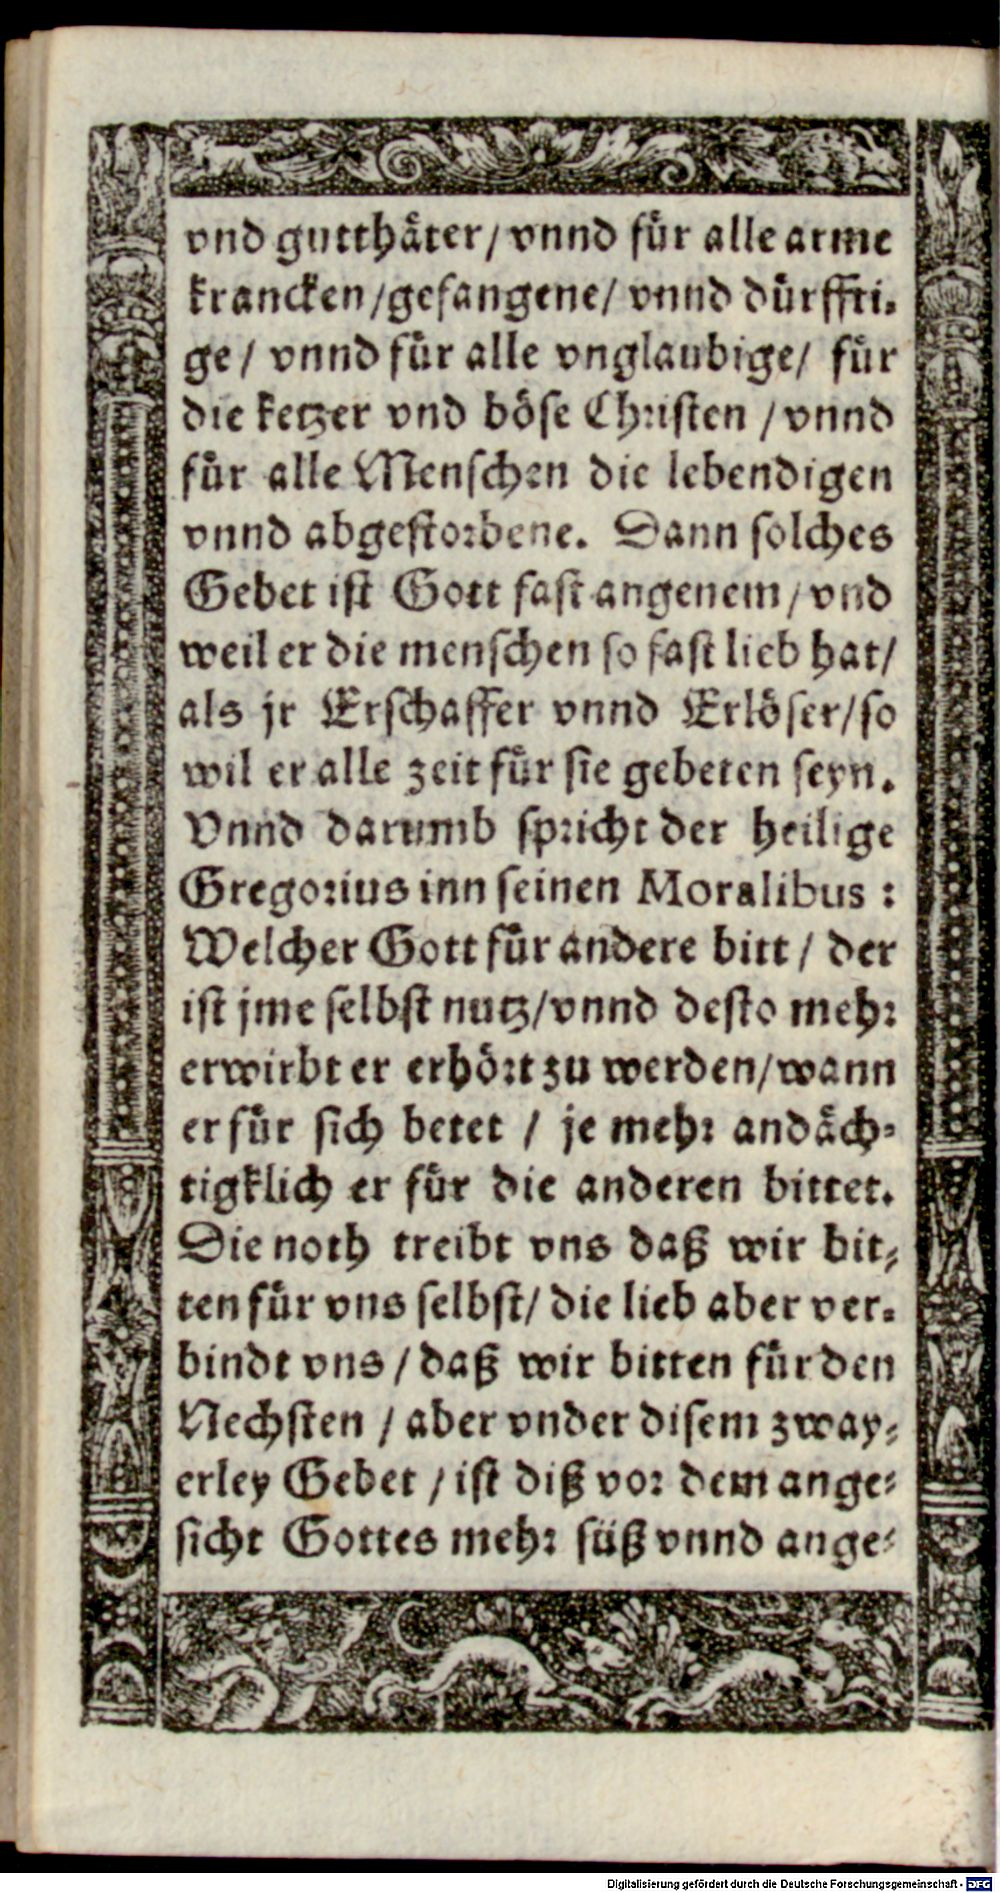 vnd gutthäter/ vnnd für alle arme
krancken/gefangene/ vnnd dürffti-
ge/ vnnd für alle vnglaubige/ für
die ketzer vnd böse Christen /vnnd
für alle Menschen die lebendigen
vnnd abgestorbene. Dann solches
Gebet ist Gott fast angenem/ vnd
weil er die menschen so fast lieb hat/
als jr Erschaffer vnnd Erlöser/so
wil er alle zeit für sie gebeten seyn.
Vnnd darumb spricht der heilige
Gregorius inn seinen Moralibus :
Welcher Gott für andere bitt/ der
ist jme selbst nutz/vnnd desto mehr
erwirbt er erhört zu werden/wann
er für sich betet / je mehr andäch-
tigklich er für die anderen bittet.
Die noth treibt vns daß wir bit-
ten für vns selbst/ die lieb aber ver-
bindt vns / daß wir bitten für den
Nechsten / aber vnder disem zway-
erley Gebet / ist diß vor dem ange-
sicht Gottes mehr süß vnnd ange-
Digitalisierung gefördert durch die Deutsche Forschungsgemeinschaft - DFG